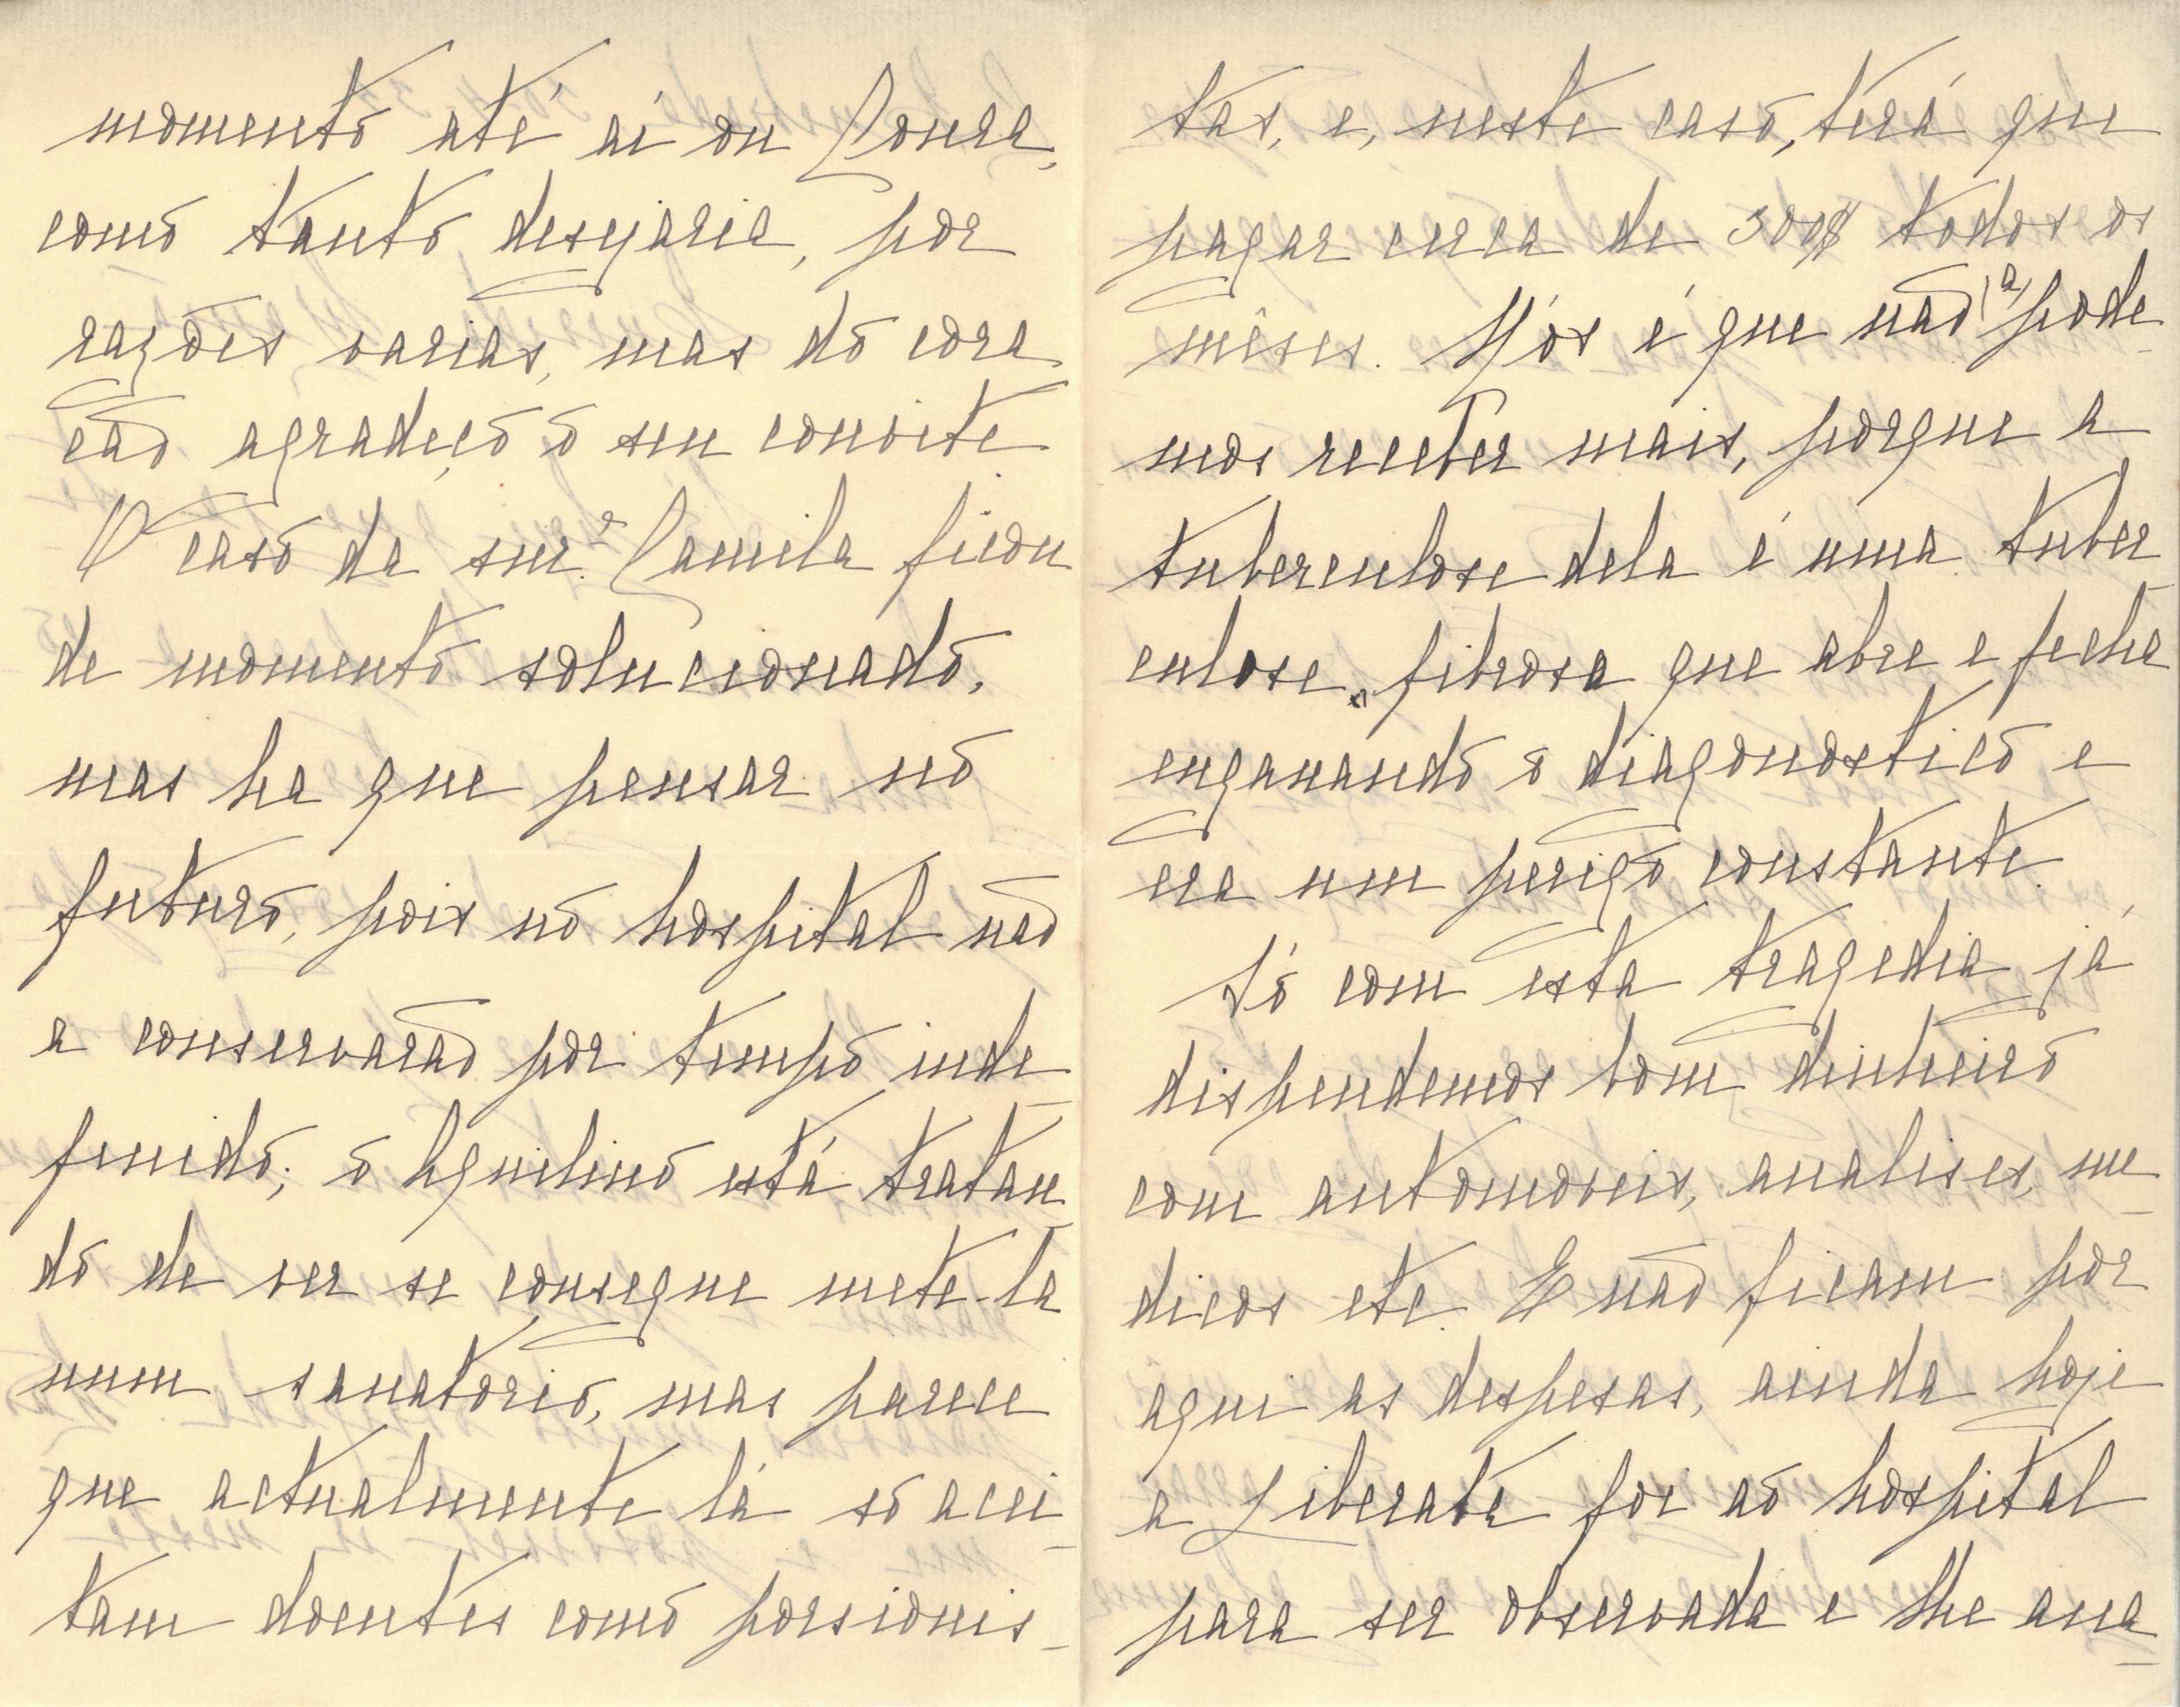 momento até aí ou Lousa,
como tanto desejaria, por
razões varias, mas do cora
ção agradeço o seu convite
O caso da snr.ª Camila ficou
de momento solucionado,
mas ha que pensar no
futuro, pois no hospital não
a conservarão por tempo inde
finido; o Aquilino está tratan
do de ver se consegue mete-la
num sanatorio, mas parece
que actualmente lá só acei-
tam doentes como porsionis-
tas, e, neste caso, terá que
pagar cerca de 300$ todos os
mêses. Nós é que não (a) pode-
mos receber mais, porque a
tuberculose dela é uma tuber
culose fibrosa que abre e fecha
enganando o diagonostico e
era um perigo constante.
Só com esta tragedia já
dispendemos bom dinheiro
com automoveis, analises, me-
dicos etc. E não ficam por
aqui as despesas, ainda hoje
a Liberata foi ao hospital
para ser observada e lhe ana-